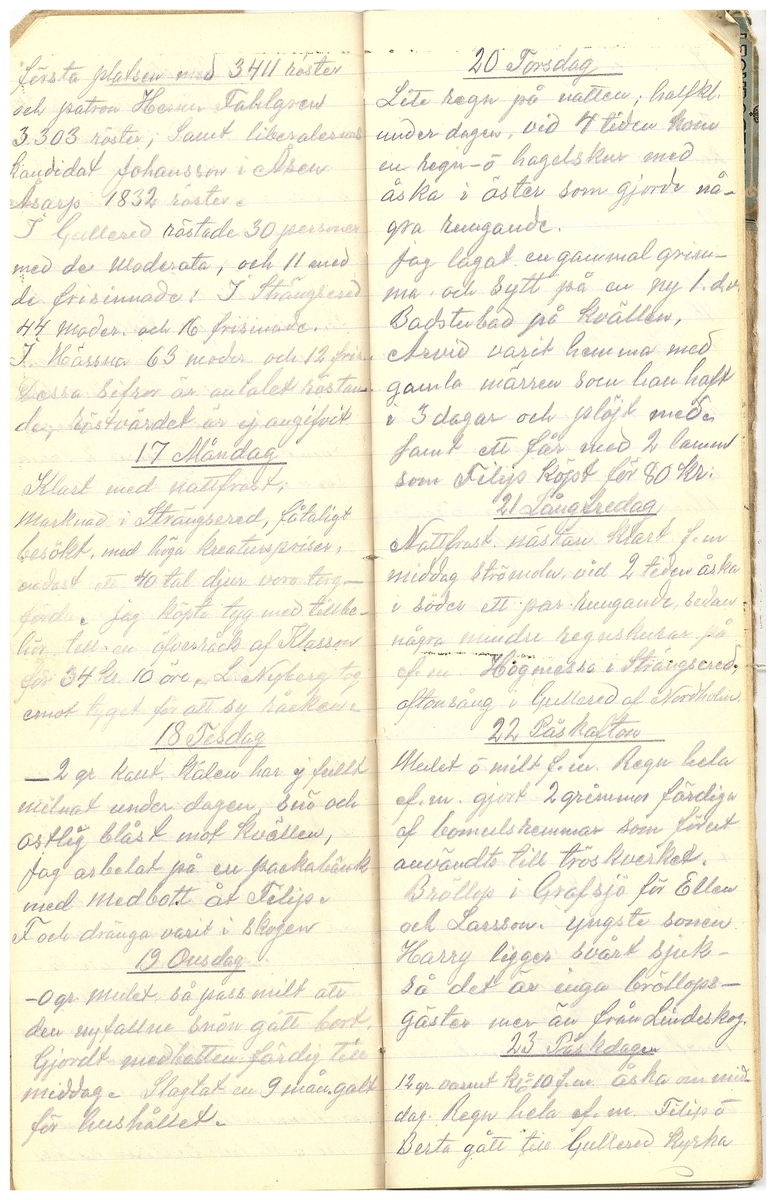 första platsen med 3411 röster
och patron Herner Fahlgren
3303 röster, Samt liberalernas
Kandidat Johansson i Åsen
Åsarp 1832 röster.
I Gullered röstade 30 personer
med de Moderata, och 11 med
de frisinnade! I Strängsered
44 Moder. och 16 frisinade.
I Hässna 63 moder och 12 fris.
Dessa Sifror är antalet röstan-
de, röstvärdet är ej angifvit
17 Måndag
Klart med nattfrost,
Marknad i Strängsered, fåtaligt
besökt, med höga kreaturspriser,
endast ett 40 tal djur voro torg-
förda. jag köpte tyg med tillbe-
hör till en öfverrock af Klasson
för 34 kr. 10 öre, L. Nyberg tog
emot tyget för att sy råcken.
18 Tesdag
- 2 gr kant. Kälen har ej fullt
milnat under dagen, Snö och
ostlig blåst mot Kvällen,
Jag arbetat på en packabänk
med Medbott åt Filip.
F och dränga varit i Skogen
19 Onsdag
-0 gr. Mulet, så pass milt att
den nyfallne Snön gått bort.
Gjordt medbotten färdig till
middag. Slagtat en 9 mån. galt
för hushållet.
20 Torsdag
Lite regn på natten, halfkl.
under dagen, vid 4 tiden kom
en regn-ö hagelskur med
åska i öster som gjorde nå-
gra rungande.
Jag lagat en gammal grim-
ma. och Sytt på en ny 1. dv.
Badstubad på Kvällen,
Arvid varit hemma med
gamla märren som han haft
i 3 dagar och plöjt med.
Samt ett får med 2 lamm
som Filip Köpt för 80 kr.
21 Långfredag
Nattfrost. nästan Klart f.m
middag strömoln, vid 2 tiden åska
i söder ett par rungande, sedan
några mindre regnskurar på
ef.m. Högmessa i Strängsered,
aftonsång i Gullered af Nordholm
22 Påskafton
Mulet ö milt f.m. Regn hela
ef.m. gjort 2 grimmor färdiga
af bomulsremmar som förut
användts till tröskverket.
Bröllop i Grafsjö för Ellen
och Larsson. yngste sonen
Harry ligger svårt sjuk-
så det är inga bröllops-
gäster mer än från Lindeskog.
23 Påskdagen
12 gr. varmt kl-10 f.m. åska om mid-
dag. Regn hela ef.m. Filip ö
Berta gått till Gullered Kyrka